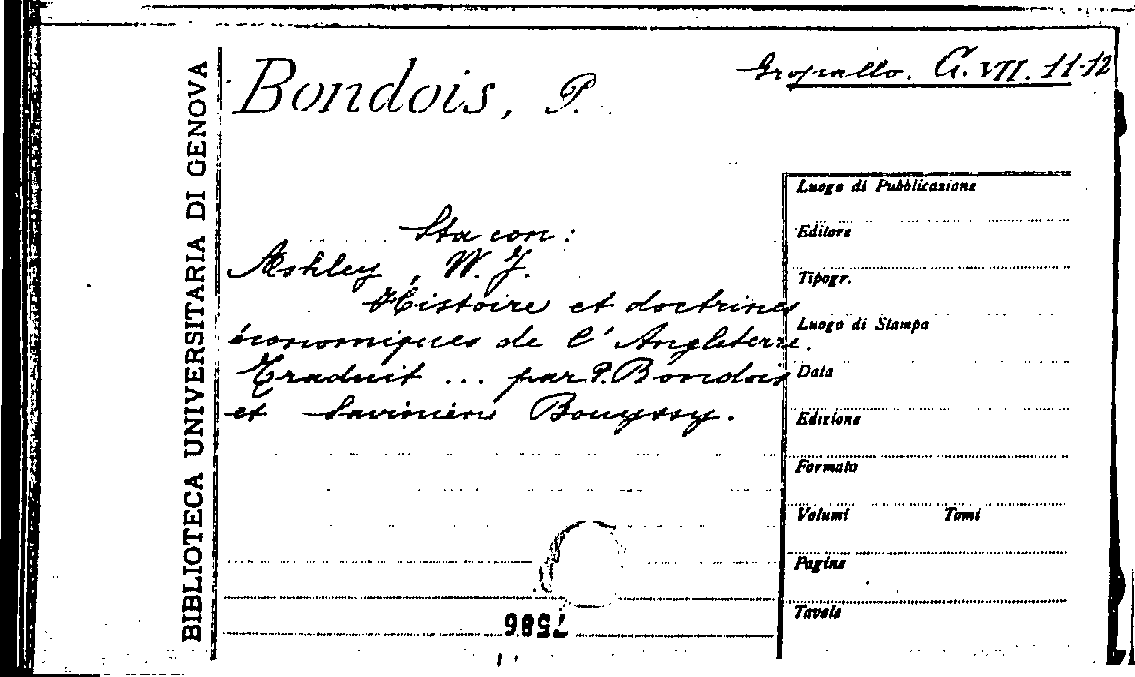 Bondois, P.
Gropallo. G. VII. 11-12
BIBLIOTECA UNIVERSITARIA DI GENOVA
Sta con:
Ashley, W. J.
Histoire et doctrines
économiques de l'Angleterre.
Traduit ... par P. Bondois
et Savinien Bouyssy.
Luogo di Pubblicazione
Editore
Tipogr.
Luogo di Stampa
Data
Edizione
Formato
Volumi Tomi
Pagine
Tavole